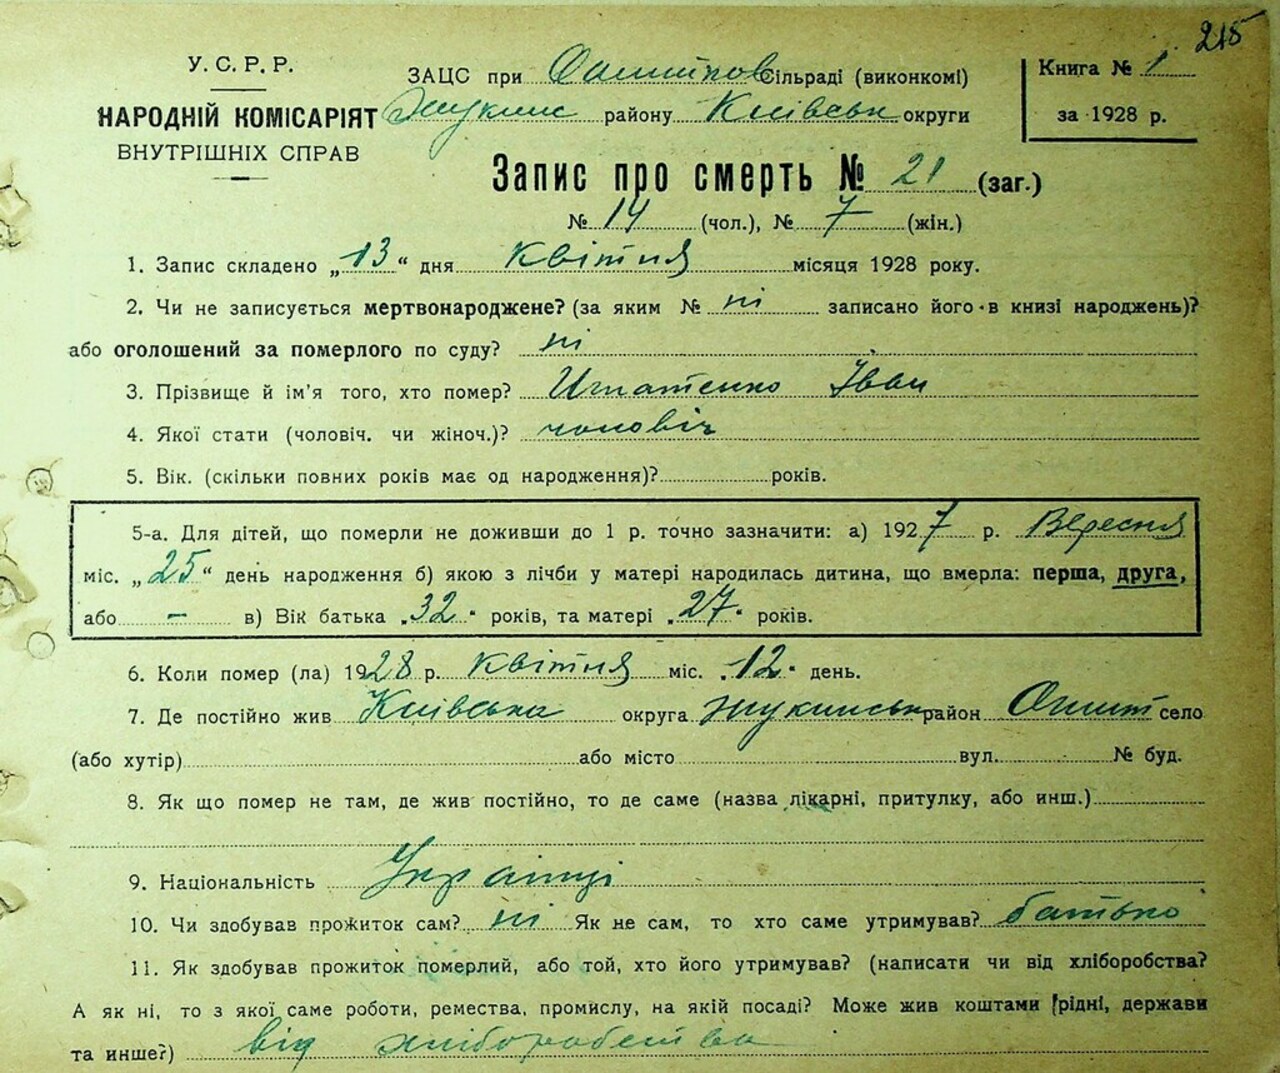 215
У.С.Р.Р.
НАРОДНІЙ КОМІСАРІЯТ
ВНУТРІШНІХ СПРАВ
ЗАЦС при Сільраді (виконкомі)
Жукинс району Київськ округи
Книга № 1
за 1928 р.
Запис про смерть № 21 (заг.)
№ 14 (чол.), № 7 (жін.)
1. Запис складено „13“ дня квітня місяця 1928 року.
2. Чи не записується мертвонароджене? (за яким № ні записано його в книзі народжень)?
або оголошений за померлого по суду? ні
3. Прізвище й ім'я того, хто помер? Игнатенко Іван
4. Якої стати (чоловіч. чи жіноч.)? чоловіч
5. Вік. (скільки повних років має од народження)? років.
5-а. Для дітей, що померли не доживши до 1 р. точно зазначити: а) 1927 р. Вересня
міс. „25“ день народження б) якою з лічби у матері народилась дитина, що вмерла: перша, друга,
або – в) Вік батька „32“ років, та матері „27“ років.
6. Коли помер (ла) 1928 р. квітня міс. „12“ день.
7. Де постійно жив Київська округа жукинськ район село
(або хутір) або місто вул. № буд.
8. Як що помер не там, де жив постійно, то де саме (назва лікарні, притулку, або инш.)
9. Національність Українці
10. Чи здобував прожиток сам? ні Як не сам, то хто саме утримував? батько
11. Як здобував прожиток померлий, або той, хто його утримував? (написати чи від хліборобства?
А як ні, то з якої саме роботи, ремества, промислу, на якій посаді? Може жив коштами рідні, держави
та инше?) від хліборобства